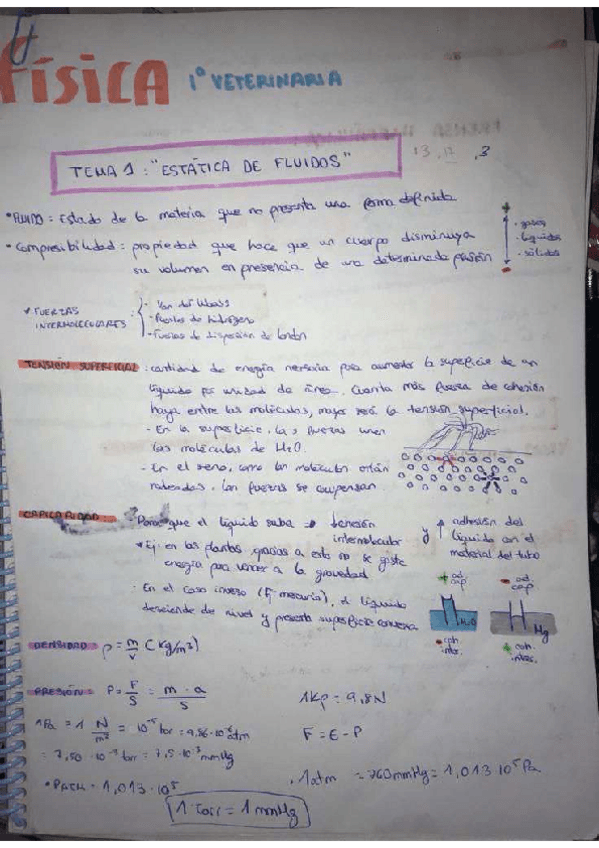 Física 1º VETERINARIA
TEMA 1: "ESTÁTICA DE FLUIDOS"
• FLUIDO: Estado de la materia que no presenta una forma definida
• Compresibilidad: propiedad que hace que un cuerpo disminuya
su volumen en presencia de una determinada presión
+
- gases
- líquidos
- sólidos
-
* FUERZAS
INTERMOLECULARES
- Van der Waals
- Puentes de hidrógeno
- Fuerzas de dispersión de London
TENSIÓN SUPERFICIAL: cantidad de energía necesaria para aumentar la superficie de un
líquido por unidad de área. Cuanta más fuerza de cohesión
haya entre las moléculas, mayor será la tensión superficial.
- En la superficie, las fuerzas unen
las moléculas de H2O.
- En el seno, como las moléculas están
rodeadas, las fuerzas se compensan
CAPILARIDAD Para que el líquido suba → tensión
intermolecular y ↑ adhesión del
líquido con el
material del tubo
* Ej: en las plantas gracias a esto no se gasta
energía para vencer a la gravedad
- En el caso inverso (Ej mercurio), el líquido
desciende de nivel y presenta superficie convexa
+ ad.
cap
- ad.
cap.
H2O
Hg
- coh.
inter.
+ coh.
intec.
DENSIDAD ρ = m/v (kg/m³)
PRESIÓN: P = F/S = m · a/S
1Kp = 9,8N
1Pa = 1 N/m² = 10⁻⁵ bar = 9,86·10⁻⁶ atm
F = E - P
= 7,50 · 10⁻³ torr = 7,5·10⁻³ mmHg
. 1atm = 760mmHg = 1,013·10⁵ Pa
• PATM = 1,013·10⁵
1 Torr = 1 mmHg